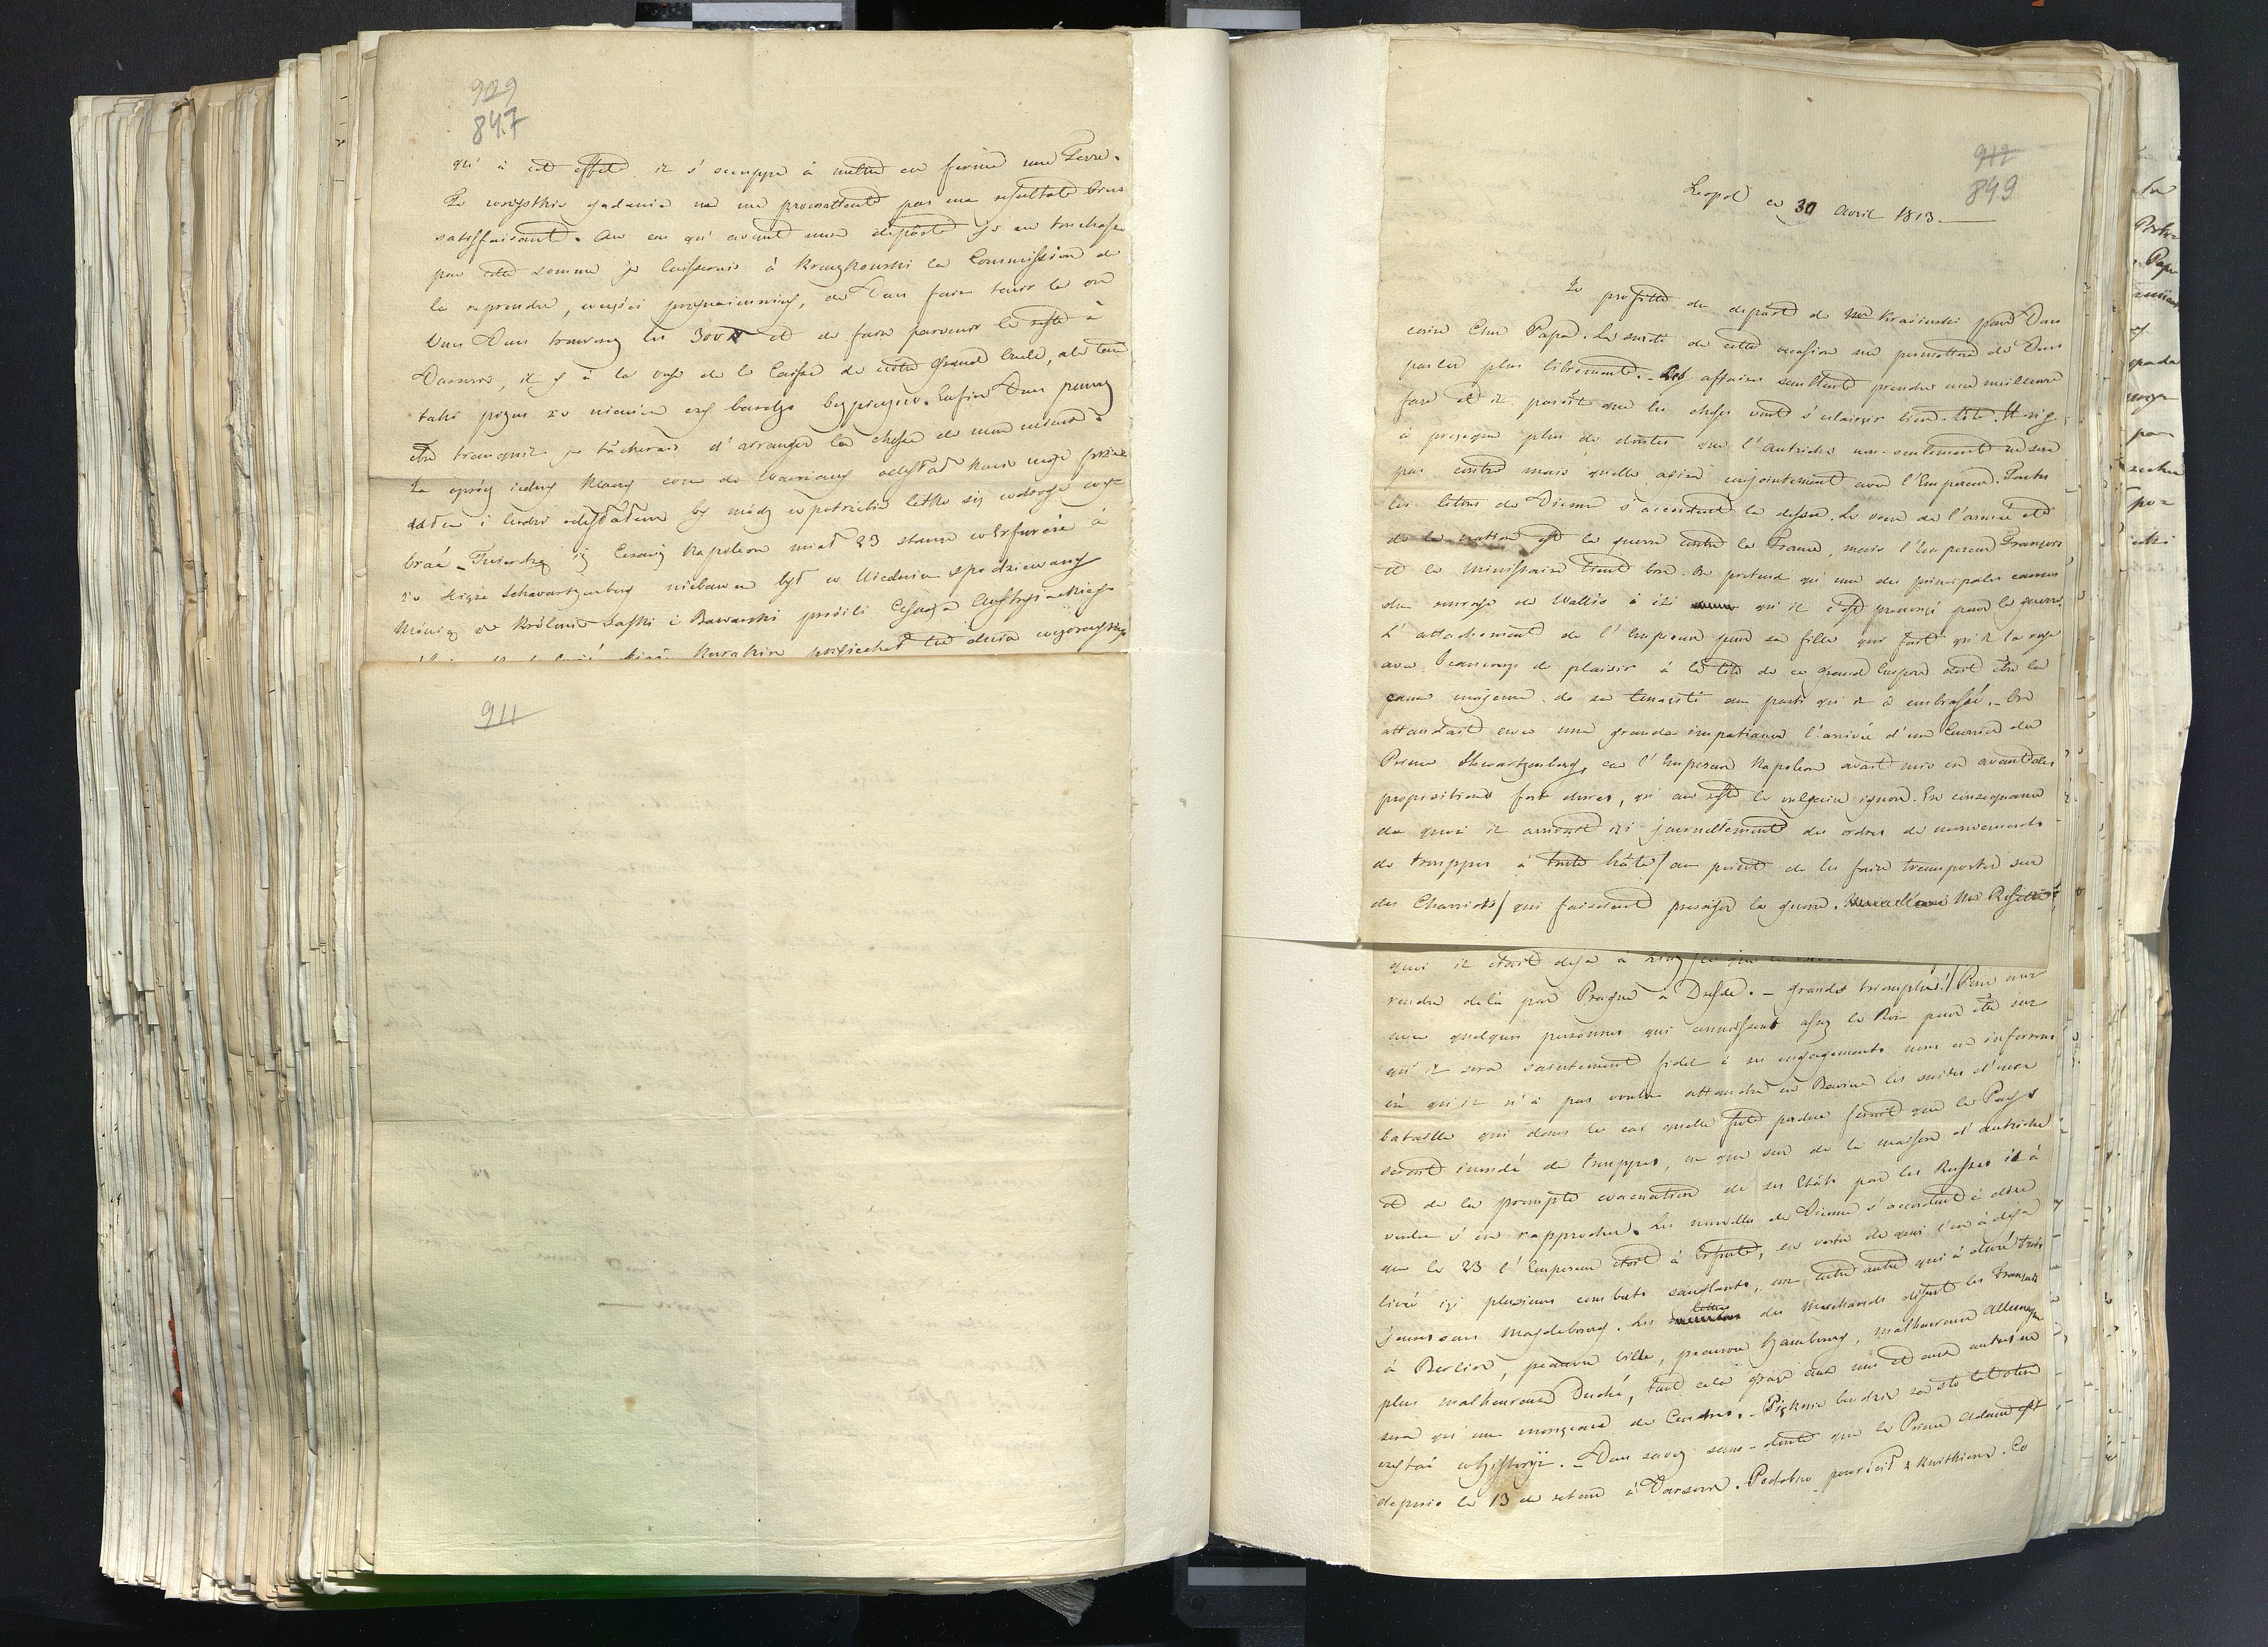 909
847
qu'à cet effet il s'occuppe à mettre en ferme une Terre.
Te wszystkie gadania ne me promettent pas un resultat bien
satisfaisant. Au cas qu'avant mon départ je ne touchasse
pas cette somme je laisserais à Kruszkowski la Commission de
la reprendre, de Vous faire tenir là où
Vous Vous trouverez les 300# et de faire parvenir le reste à
Varsovie, il y à la voye de la Caisse de nôtre Grand Oncle, ale teu
taki pozno to niewiem czy bardzo bezpieczno. Enfin Vous pouvez
être tranquil je tâcherais d'arranger la chose de mon mieux.
i ludzi odesłałem by módz w potrzebie letko się w drogę wy-
brać. Twierdzą iż Cesarz Napoleon miał 23 stanąć w Erfurcie à
że Xiąże Schwartzenberg niebawem był w Wiedniu spodziewany
Mówią że Królowie Saski i Bawarski prosili Cesarza Austryackiego
Kurakin przyjechał tu dnia wczorayszego
911
912
849
Leopol ce 30 Avril 1813.
Je profitte du départ de Mr Krasinski pour Vous
écrire Cher Papa. La sureté de cette occasion me permettra de Vous
parler plus librement. Les affaires semblent prendre une meilleure
face et il paroît que les choses vont s'éclaircir bien-tôt. Il n'y
à presque plus de doutes que l'Autriche non-seulement ne sera
pas contre mais quelle agira conjointement avec l'Empereur. Toutes
les lettres de Vienne s'accordent la dessus. Le voeu de l'armée et
de la nation est la guerre contre la France, mais l'Empereur François
et le Ministaire tient bon. On pretend qu'une des principales causes
du renvoye de Wallis à été qu'il s'est prononcé pour la guerre.
L'attachement de l'Empereur pour sa fille qui fait qu'il la voye
avec beaucoup de plaisir à la tête de ce grand Empire doit être la
cause majeure de sa tenacité au parti qu'il à embrassé. On
attendait avec une grande impatiance l'arrivée d'un Courrier du
Prince Shwartzenberg, car l'Empereur Napoleon avait mis en avant des
propositions fort dures, qu'au reste le vulgaire ignore. En consequance
de quoi il arrivoit ici journellement des ordres de mouvements
de trouppes à toute hâte/au point de les faire transporter sur
des Charriots/ qui faisoient presager la guerre.
quoi il étoit déja à Linz
rendre delà par Prague à Dresde. – grands triomphe!/
avec quelques personnes qui connoissent assez le Roi pour être sur
qu'il sera saintement fidel à ses engagements nous en informe
où qu'il n'à pas voulu attandre en Baviere les suites d'une
bataille qui dans le cas quelle fut perdue feroit que le Pays
seroit inondé de trouppes, ou que sur de la maison d'autriche
et de la prompte evacuation de ses Etats par les Russes il à
voulu s'en rapprocher. Les nouvelles de Vienne s'accordent à dire
que le 23 l'Empereur étoit à Erfurt, en vertu de quoi l'on à déja
livré ici plusieurs combats sanglants, un entre autre qui à duré trois
jours sous Magdebourg. Les lettres des Marchands disent les Français
à Berlin, pauvre ville, pauvre Hambourg, malheureuse Allemagne
plus malheureux Duché, tout cela grace aux uns et aux autres ne
sera qu'un monceau de Cendres. – Pięknie bendzie za sto lat o tem
czytać w Hystoryi. – Vous savez sans-doute que le Prince Adam est
depuis le 13 de retour à Varsovie. Podobno powrócił z kwitkiem. Co